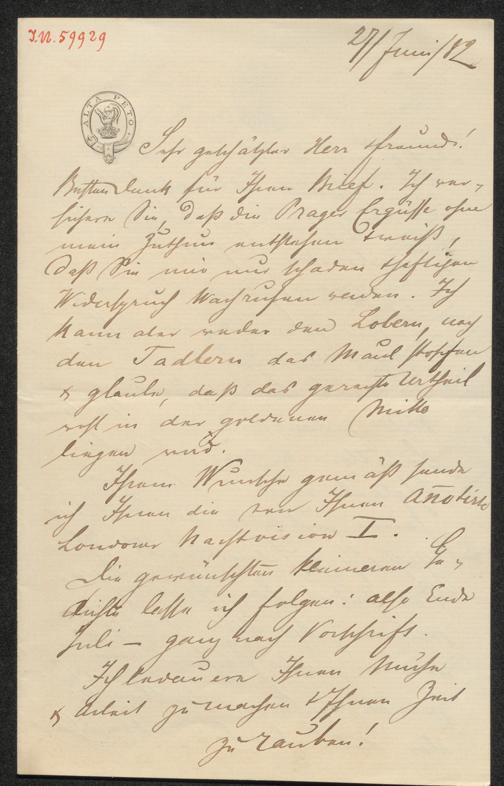 I.N. 59929
27/Juni/82
ALTA PETO
Sehr geschätzter Herr & Freund!
Besten Dank für Ihren Brief. Ich ver-
sichere Sie, daß die Prager Ergüsse ohne
mein Zuthun entstehen & weiß,
daß Sie mir nur schaden & heftigen
Widerspruch wachrufen werden. Ich
kann aber weder den Lobern, noch
den Tadlern das Maul stopfen
& glaube, daß das gerechte Urtheil
wohl in der goldenen Mitte
liegen wird.
Ihrem Wunsche gemäß sende
ich Ihnen die von Ihnen Anotirte
Londoner Nachtvision I.
Die gewünschten kleineren Ge-
dichte lasse ich folgen: also Ende
Juli – ganz nach Vorschrift.
Ich bedauere Ihnen Mühe
& Arbeit zu machen & Ihnen Zeit
zu rauben!